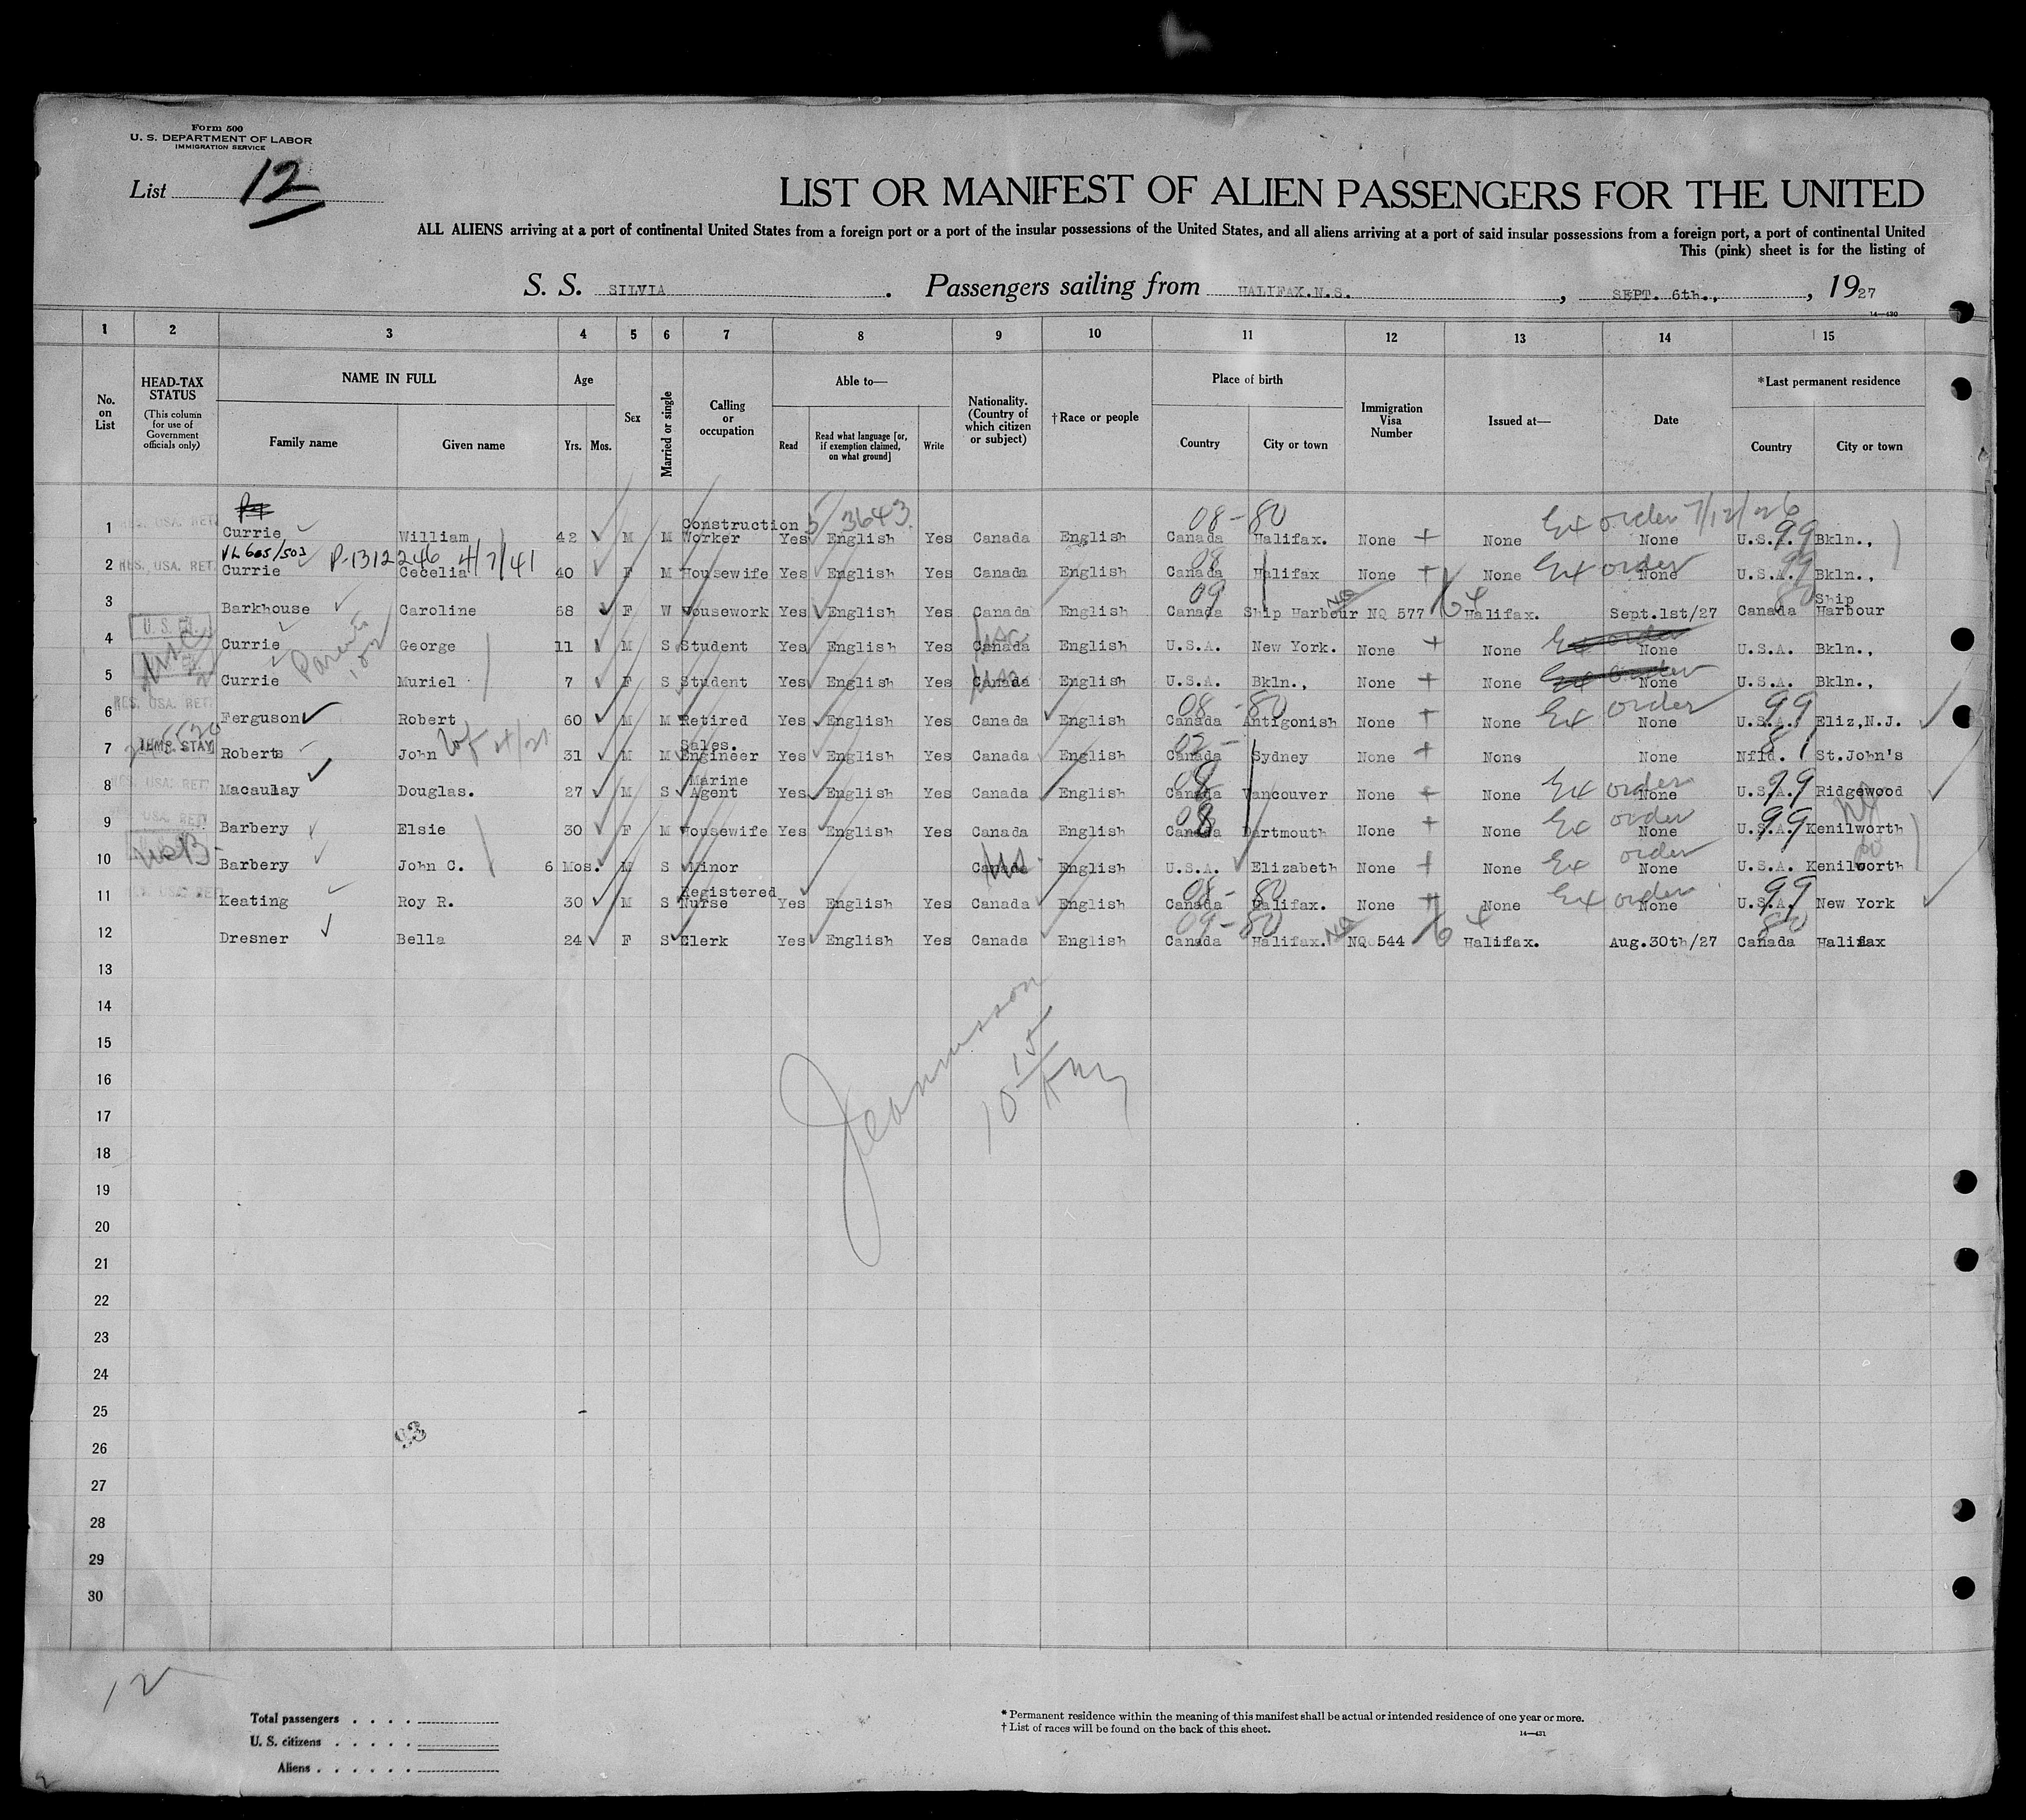 Form 500
U. S. DEPARTMENT OF LABOR
IMMIGRATION SERVICE
List 12
LIST OR MANIFEST OF ALIEN PASSENGERS FOR THE UNITED
ALL ALIENS arriving at a port of continental United States from a foreign port or a port of the insular possessions of the United States, and all aliens arriving at a port of said insular possessions from a foreign port, a port of continental United
This (pink) sheet is for the listing of
S. S. SILVIA. Passengers sailing from HALIFAX.N.S., SEPT. 6th., , 1927
14—430
1 2 3 4 5 6 7 8 9 10 11 12 13 14 15
No. on List
HEAD-TAX STATUS (This column for use of Government officials only)
NAME IN FULL
Family name Given name
Age
Yrs. Mos.
Sex
Married or single
Calling or occupation
Able to—
Read Read what language [or, if exemption claimed, on what ground] Write
Nationality. (Country of which citizen or subject)
†Race or people
Place of birth
Country City or town
Immigration Visa Number
Issued at—
Date
*Last permanent residence
Country City or town
5/3643 08-80 Ex order 7/12/26 99
1 RES. USA. RET. Currie William 42 M M Construction Worker Yes English Yes Canada English Canada Halifax. None + None None U.S.A. Bkln.,
VL 605/503 P-1312246 4/7/41 08 Ex order 99
2 RES. USA. RET. Currie Cecelia 40 F M Housewife Yes English Yes Canada English Canada Halifax None + None None U.S.A. Bkln.,
09 NQ 80
3 Barkhouse Caroline 68 F W Housework Yes English Yes Canada English Canada Ship Harbour NQ 577 Halifax. Sept.1st/27 Canada Ship Harbour
Parents Ex order
4 Currie George 11 M S Student Yes English Yes Canada English U.S.A. New York. None + None None U.S.A. Bkln.,
Ex order
5 Currie Muriel 7 F S Student Yes English Yes Canada English U.S.A. Bkln., None + None None U.S.A. Bkln.,
08-80 Ex order 99
6 RES. USA. RET. Ferguson Robert 60 M M Retired Yes English Yes Canada English Canada Antigonish None + None None U.S.A. Eliz,N.J.
02- 81
7 TEMP. STAY Roberts John 31 M M Sales. Engineer Yes English Yes Canada English Canada Sydney None + None None Nfld. St.John's
08 Ex order 99
8 RES. USA. RET. Macaulay Douglas. 27 M S Marine Agent Yes English Yes Canada English Canada Vancouver None + None None U.S.A. Ridgewood
08 Ex order 99 NJ
9 RES. USA. RET. Barbery Elsie 30 F M Housewife Yes English Yes Canada English Canada Dartmouth None + None None U.S.A. Kenilworth
USB US. Ex order do
10 Barbery John C. 6 Mos. M S Minor Canada English U.S.A. Elizabeth None + None None U.S.A. Kenilworth
08-80 Ex order 99
11 RES. USA. RET. Keating Roy R. 30 M S Registered Nurse Yes English Yes Canada English Canada Halifax. None + None None U.S.A. New York
09-80 NQ 80
12 Dresner Bella 24 F S Clerk Yes English Yes Canada English Canada Halifax. NQ 544 Halifax. Aug.30th/27 Canada Halifax
13
14
15
16
17
18
19
20
21
22
23
24
25
26
27
28
29
30
93
12
Total passengers . . . .
U. S. citizens . . . . .
Aliens . . . . . .
* Permanent residence within the meaning of this manifest shall be actual or intended residence of one year or more.
† List of races will be found on the back of this sheet.
14—431